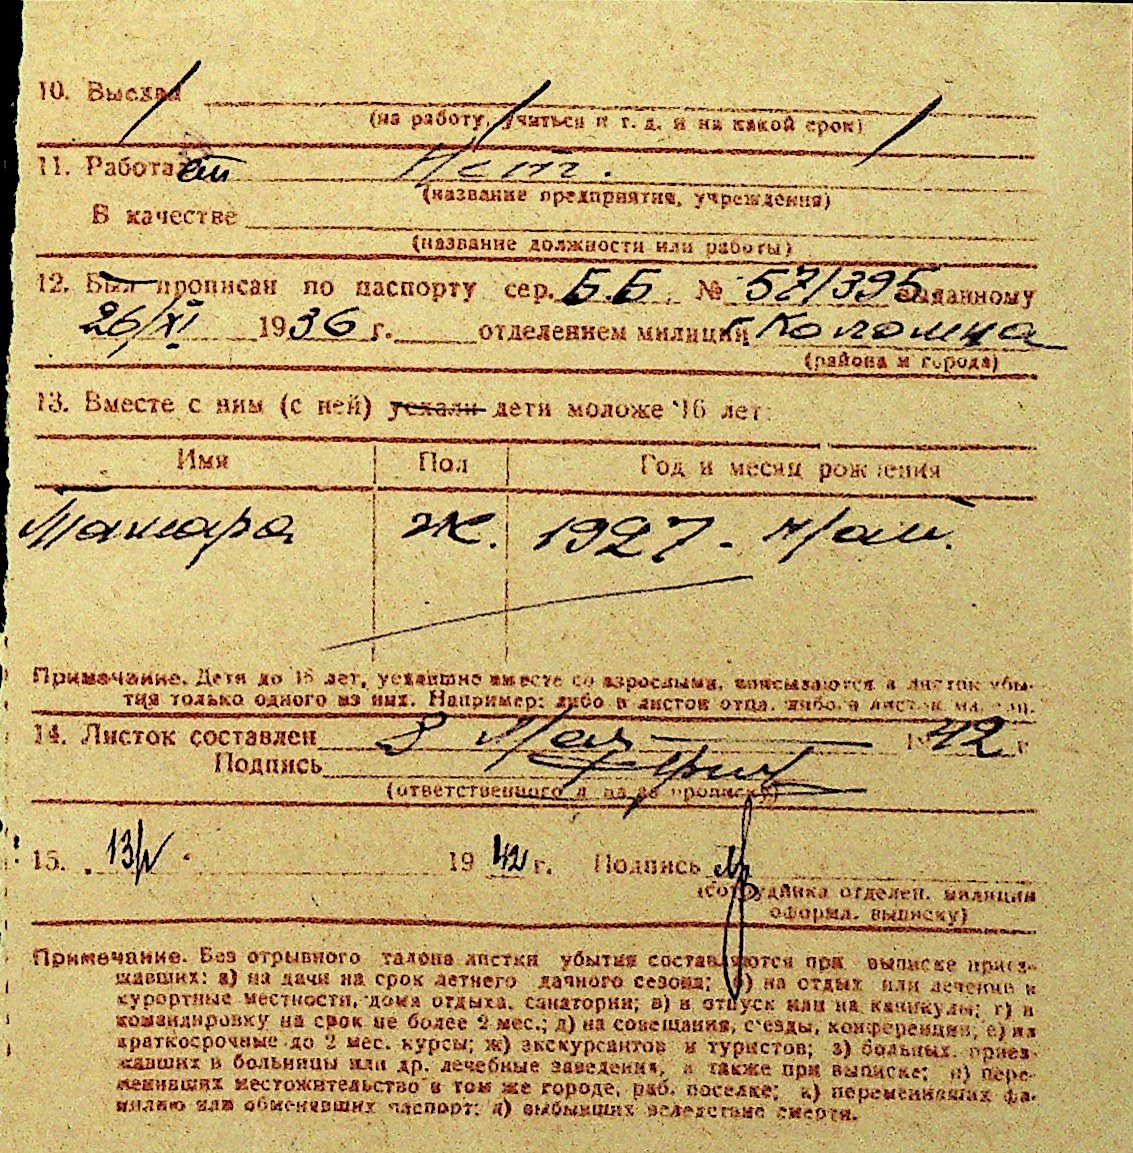 10. Выехал
(на работу, учиться и т. д. и на какой срок)
11. Работает Нет.
(название предприятия, учреждения)
В качестве
(название должности или работы)
12. Был прописан по паспорту сер. Б.Б. № 571395 выданному
26/XI 1936 г. отделением милиции г. Коломна
(района и города)
13. Вместе с ним (с ней) уехали дети моложе 16 лет:
Имя Пол Год и месяц рождения
Тамара Ж. 1927. Май.
Примечание. Дети до 16 лет, уехавшие вместе со взрослыми, вписываются в листок убы-
тия только одного из них. Например: либо в листок отца, либо в листок
14. Листок составлен 8 Мая 1942 г.
Подпись
(ответственного за прописку)
15. 13/V 1942 г. Подпись
(сотрудника отделен. милиции
оформл. выписку)
Примечание. Без отрывного талона листки убытия составляются при выписке приез-
жавших: а) на дачи на срок летнего дачного сезона; б) на отдых или лечение в
курортные местности, дома отдыха, санатории; в) в отпуск или на каникулы; г) в
командировку на срок не более 2 мес.; д) на совещания, съезды, конференции; е) на
краткосрочные до 2 мес. курсы; ж) экскурсантов и туристов; з) больных, приез-
жавших в больницы или др. лечебные заведения, а также при выписке; и) пере-
менивших местожительство в том же городе, раб. поселке; к) переменивших фа-
милию или обменявших паспорт; л) выбывших вследствие смерти.